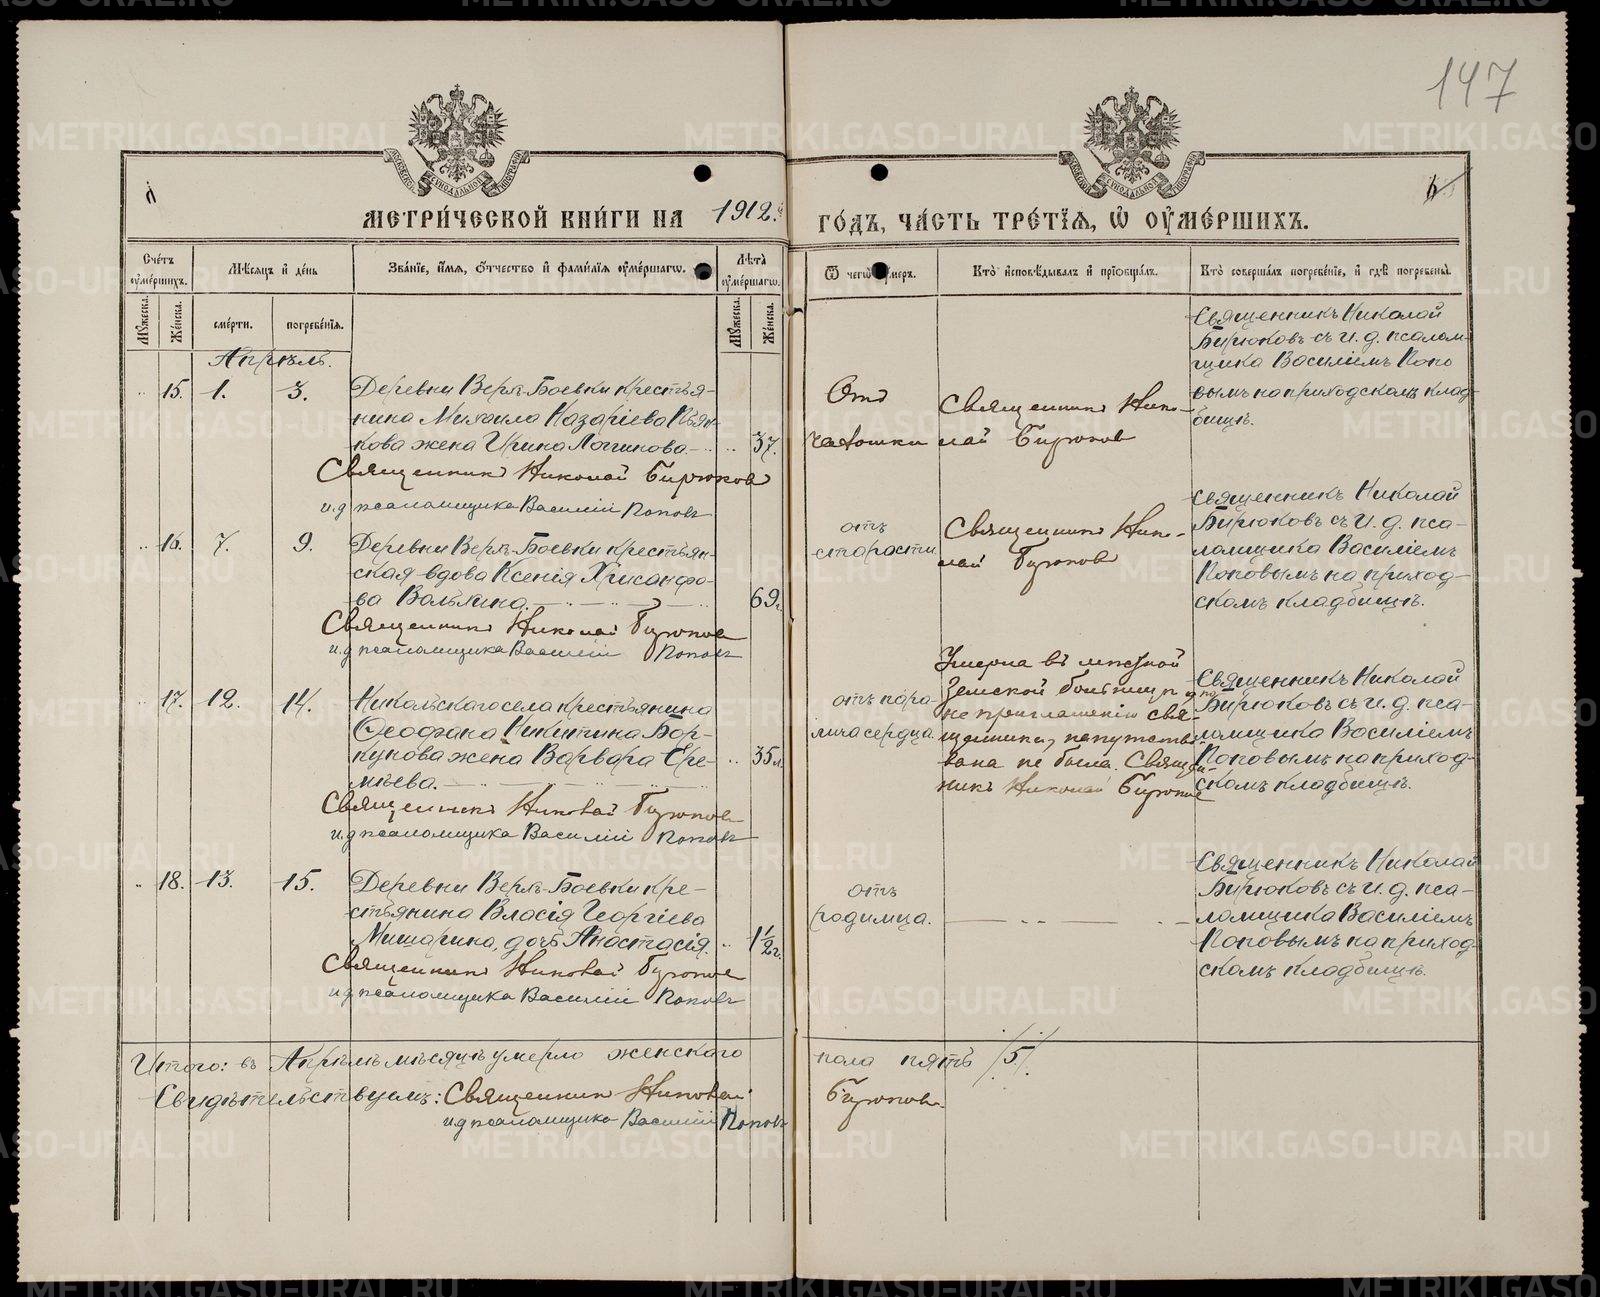 147
МЕТРИ́ЧЕСКОЙ КНИ́ГИ НА 1912.й ГО́ДЪ, ЧА́СТЬ ТРЕ́ТІѦ, Ѡ ОУМЕ́РШИХЪ.
Сче́тъ оумершихъ.
Мѣсяцъ и де́нь
Зва́нїе, и́мѧ, Ѻтчество и фами́лїѧ оуме́ршагѡ.
Лѣта̀ оуме́ршагѡ.
Ѿ чегѡ̀ оу́меръ.
Кто̀ исповѣ́дывалъ и прїобща́лъ.
Кто̀ соверша́лъ погребе́нїе, и гдѣ̀ погребены̀.
Мꙋ́жеска.
Же́нска.
сме́рти.
погребе́нїѧ.
Мꙋ́жеска.
Же́нска.
Апрѣль.
15. 1. 3.
Деревни Верх-Боевки крестья-
нина Михаила Назаріева Пьян-
кова жена Ирина Логинова. 37.
Священникъ Николай Бирюков
и.д псаломщика Василій Поповъ
Отъ
чахотки
Священникъ Нико-
лай Бирюков
Священникъ Николай
Бирюковъ съ и. д. псалом-
щика Василіемъ Попо
вымъ на приходскомъ клад-
бищѣ.
16. 7. 9.
Деревни Верх-Боевки крестьян-
ская вдова Ксенія Хрисанфо-
ва 69.
Священникъ Николай Бирюков
и.д псаломщика Василій Поповъ
отъ
старости
Священникъ Нико-
лай Бирюков
Священникъ Николай
Бирюковъ съ и. д. пса-
ломщика Василіемъ
Поповымъ на приход-
скомъ кладбищѣ.
17. 12. 14.
Никольскаго села крестьянина
Феофана Никитина Бор-
кунова жена Варвара Ере-
мѣева. 35 л.
Священникъ Николай Бирюков
и.д псаломщика Василій Поповъ
отъ пора-
лича сердца.
Умерла въ мѣстной
Земской больницѣ и по
не приглашенію свя-
щенника, напутство-
вана не была. Священ-
никъ Николай Бирюков
Священникъ Николай
Бирюковъ съ и. д. пса-
ломщика Василіемъ
Поповымъ на приход-
скомъ кладбищѣ.
18. 13. 15.
Деревни Верх-Боевки кре-
стьянина Власія Георгіева
Мишарина, дочь Анастасія. 1½ г.
Священникъ Николай Бирюков
и.д псаломщика Василій Поповъ
отъ
родимца.
Священникъ Николай
Бирюковъ съ и. д. пса-
ломщика Василіемъ
Поповымъ на приход-
скомъ кладбищѣ.
Итого: въ Апрѣлѣ мѣсяцѣ умерло женскаго пола пять /5/.
Свидѣтельствуемъ: Священник Николай Бирюков.
и.д псаломщика Василій Поповъ
METRIKI.GASO-URAL.RU